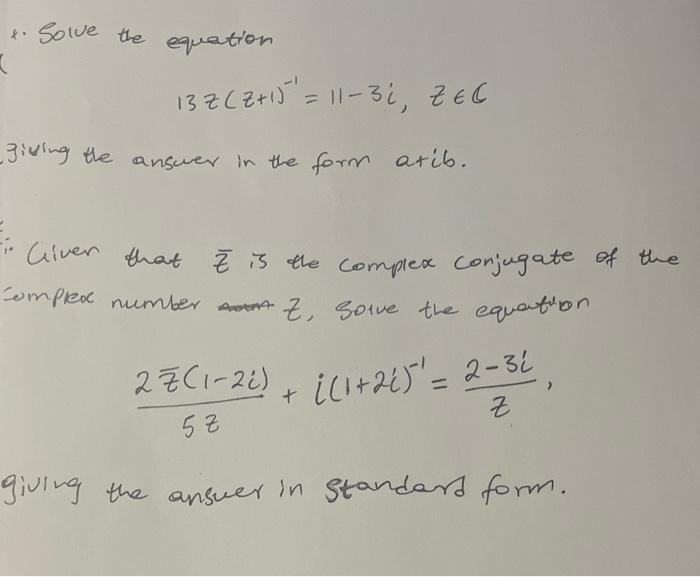 Solve the equation
13z(z+1)⁻¹ = 11-3i, z∈C
giving the answer in the form a+ib.
Given that z̅ is the complex conjugate of the
complex number z, solve the equation
2z̅(1-2i)/5z + i(1+2i)⁻¹ = 2-3i/z,
giving the answer in standard form.